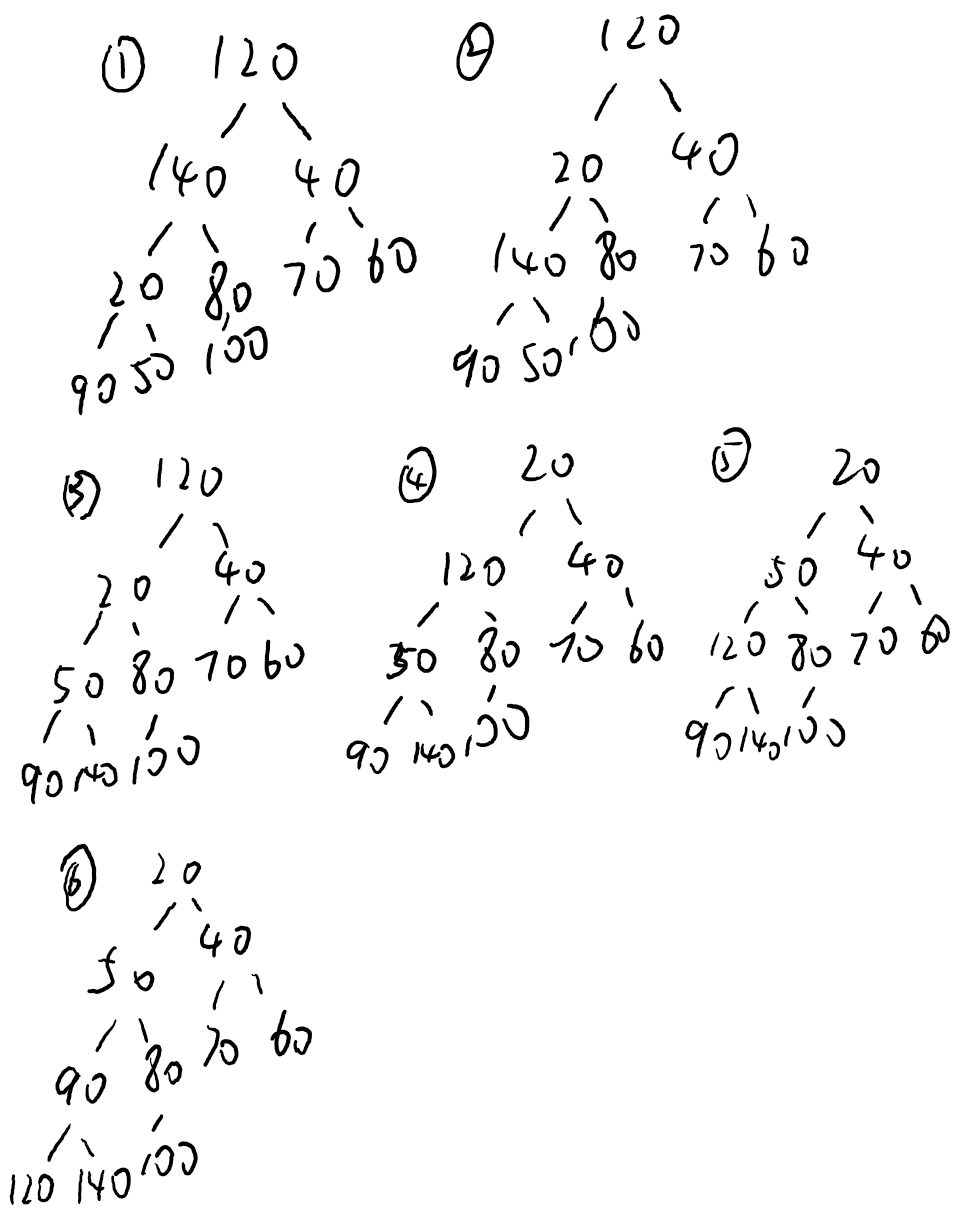 ① 120
140 40
20 80 70 60
90 50 100
② 120
20 40
140 80 70 60
90 50 100
③ 120
20 40
50 80 70 60
90 140 100
④ 20
120 40
50 80 70 60
90 140 100
⑤ 20
50 40
120 80 70 60
90 140 100
⑥ 20
50 40
90 80 70 60
120 140 100